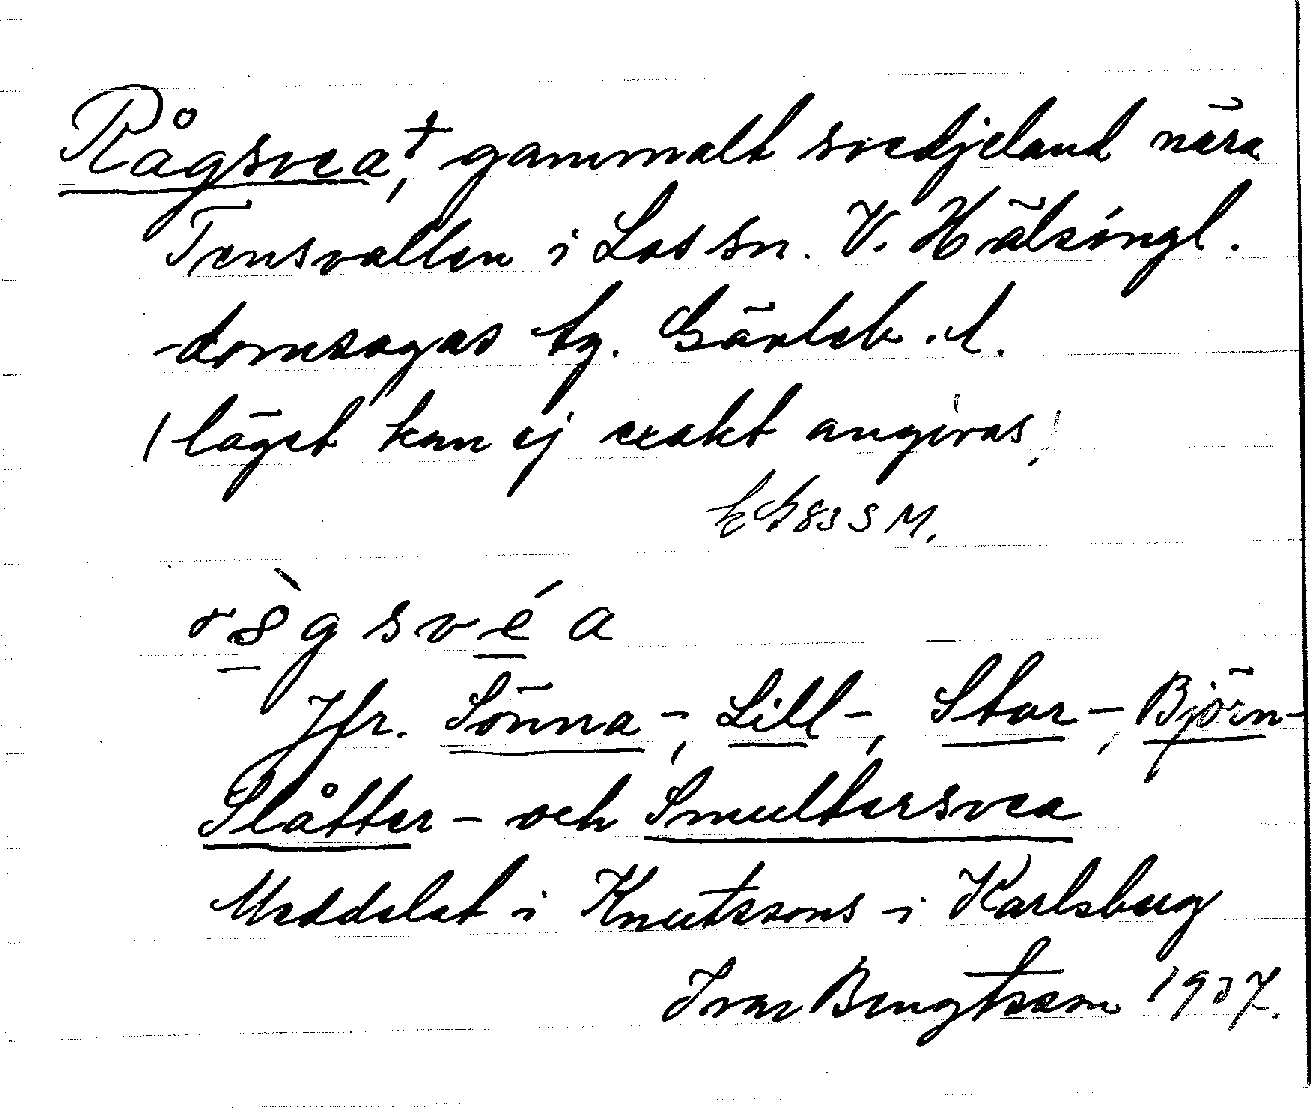 Rågsvea,† gammalt svedjeland nära
Tensvallen i Los sn. V. Hälsingl.
domsagas tg. Gävleb. l.
(läget kan ej exakt angivas)
SSM.
Jfr. Sönna-, Lill-, Stor-, Björn-
Slåtter- och Smultersvea
Meddelat i Knutssons i Karlsberg
Ivar Bengtsson 1937.